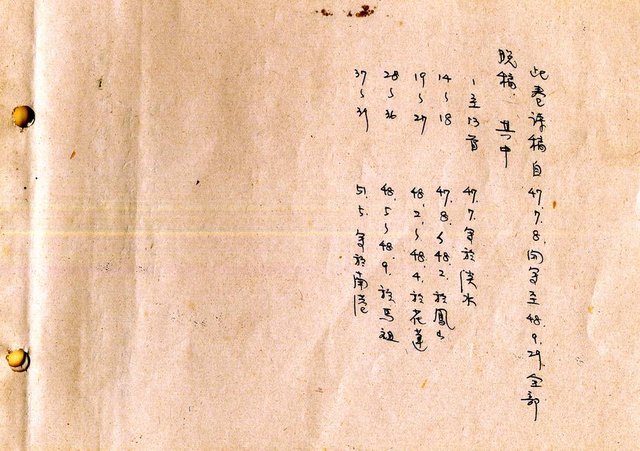 此卷詩稿自47.7.8.開筆至48.9.29.全部
脫稿.其中
1至13首 47.7.筆於淡水
14~18 47.8.~48.2.於鳳山
19~27 48.2.~48.4.於花蓮
28~36 48.5~48.9.於馬祖
37~39 51.5.筆於南港